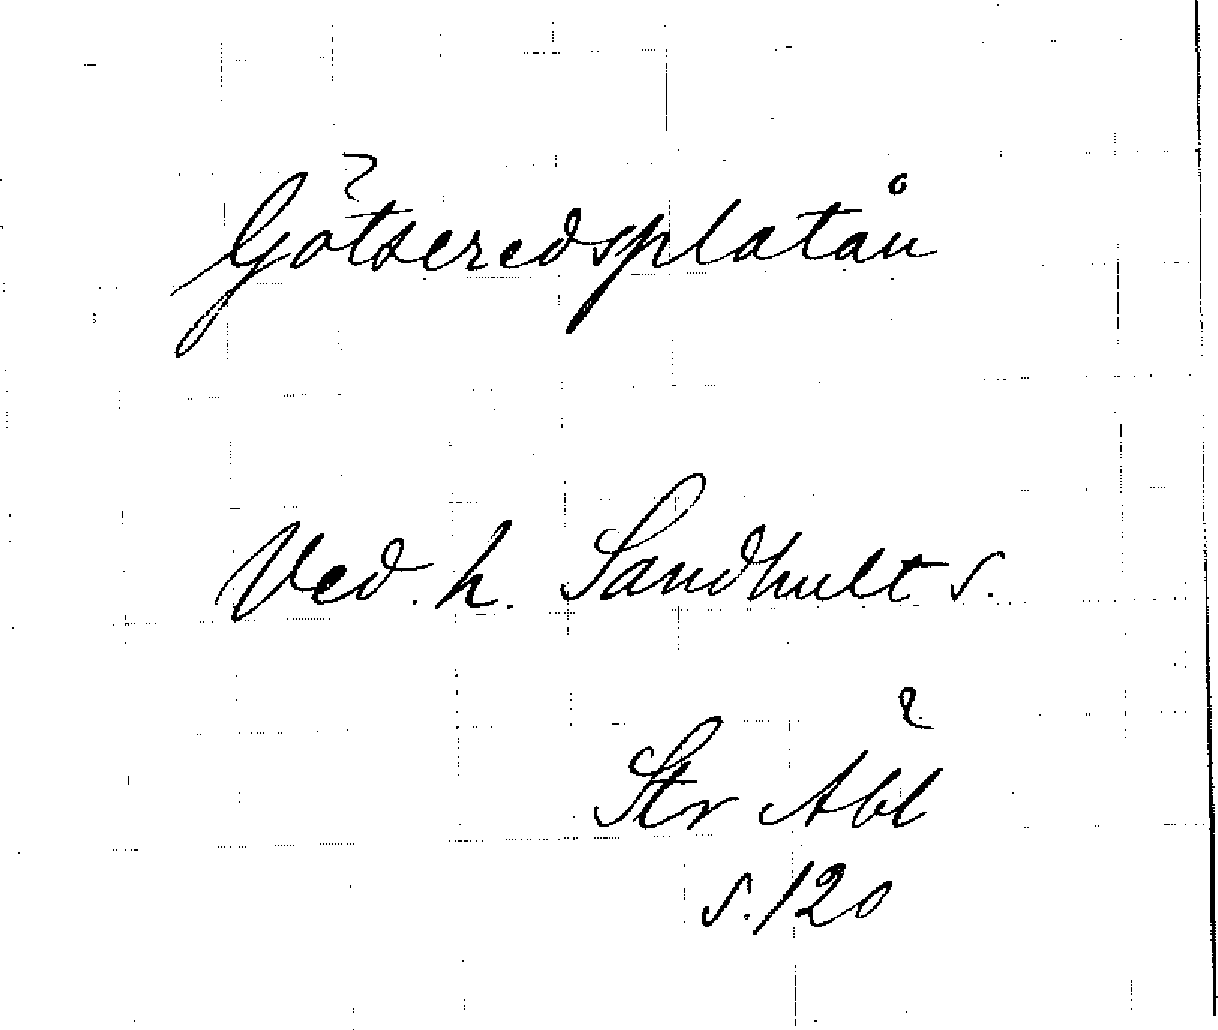 Götseredsplatån
Ved. h. Sandhult s.
Str Abl
s. 120